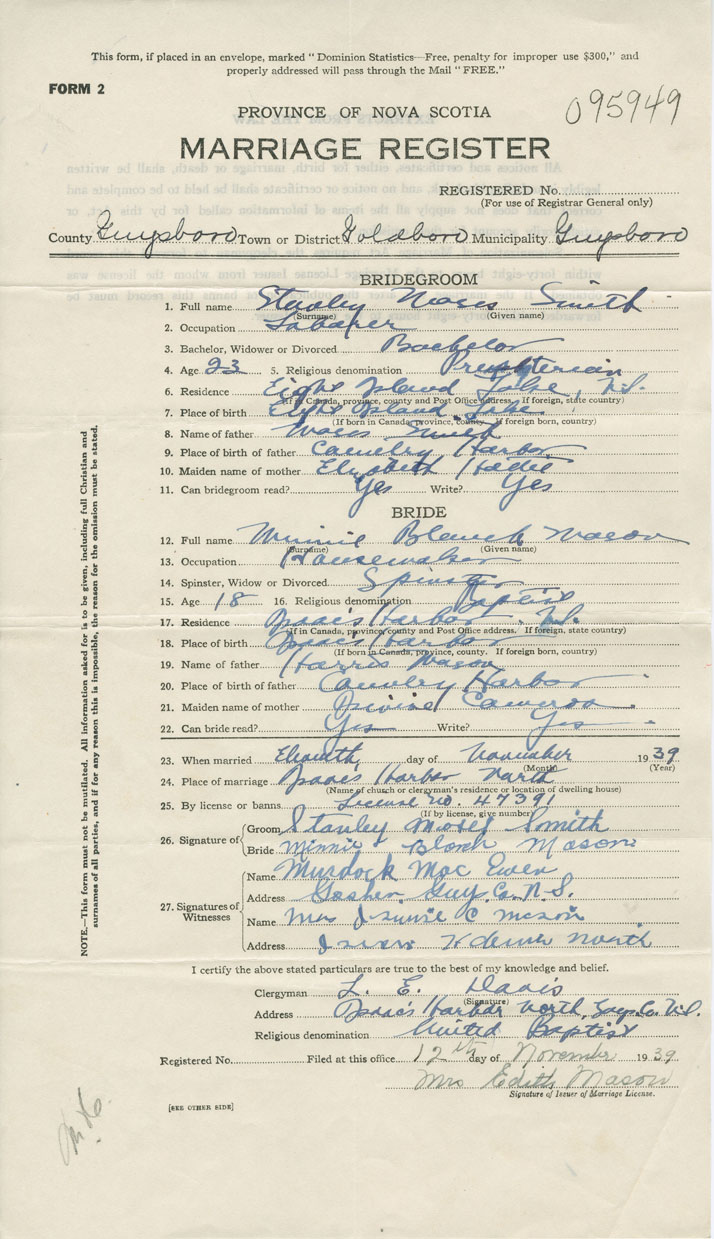 This form, if placed in an envelope, marked "Dominion Statistics—Free, penalty for improper use $300," and
properly addressed will pass through the Mail "FREE."
FORM 2
095949
PROVINCE OF NOVA SCOTIA
MARRIAGE REGISTER
REGISTERED No.
(For use of Registrar General only)
County Guysboro Town or District Goldboro Municipality Guysboro
BRIDEGROOM
1. Full name Stanley Moses Smith
(Surname) (Given name)
2. Occupation Labarer
3. Bachelor, Widower or Divorced Bachelor
4. Age 23 5. Religious denomination Presbyterian
6. Residence Eight Island Lake, N.S.
(If in Canada, province, county and Post Office address. If foreign, state country)
7. Place of birth Eight Island Lake
(If born in Canada, province, county. If foreign born, country)
8. Name of father Moses Smith
9. Place of birth of father Country Harbor
10. Maiden name of mother Elizabeth
11. Can bridegroom read? Yes Write? Yes
BRIDE
12. Full name Minnie Blanch Mason
(Surname) (Given name)
13. Occupation Housewalker
14. Spinster, Widow or Divorced Spinster
15. Age 18 16. Religious denomination Baptist
17. Residence Isaac's Harbor, N.S.
(If in Canada, province, county and Post Office address. If foreign, state country)
18. Place of birth Isaac's Harbor
(If born in Canada, province, county. If foreign born, country)
19. Name of father Harris Mason
20. Place of birth of father Country Harbor
21. Maiden name of mother Cameron
22. Can bride read? Yes Write? Yes
23. When married Eleventh day of November 1939
(Month) (Year)
24. Place of marriage Isaac's Harbor North
(Name of church or clergyman's residence or location of dwelling house)
25. By license or banns License no. 47391
(If by license, give number)
26. Signature of
Groom Stanley Moses Smith
Bride Minnie Blanch Mason
27. Signatures of Witnesses
Name Murdock Mac Ewen
Address Goshen Guy. Co. N.S.
Name Mrs C Mason
Address North
I certify the above stated particulars are true to the best of my knowledge and belief.
Clergyman L. E. Davis
(Signature)
Address Isaac's Harbor North, Guy. Co. N.S.
Religious denomination United Baptist
Registered No. Filed at this office 12th day of November 1939
Mrs Edith Mason
Signature of Issuer of Marriage License.
[SEE OTHER SIDE]
NOTE.—This form must not be mutilated. All information asked for is to be given, including full Christian and
surnames of all parties, and if for any reason this is impossible, the reason for the omission must be stated.